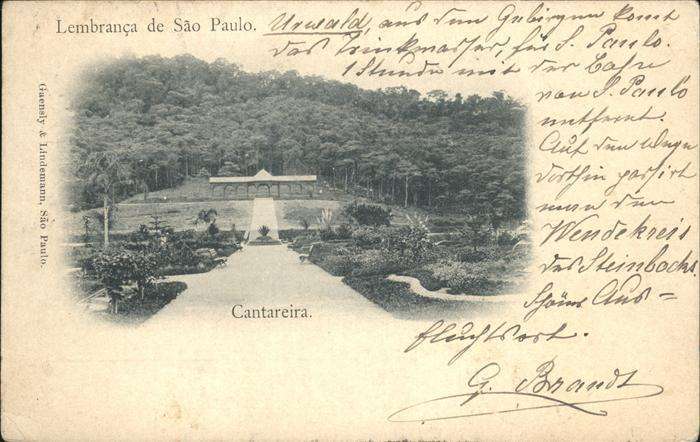 Lembrança de São Paulo.
Urwald, aus den Gebirgen komt
das Trinkwasser, für S. Paulo.
1 Stunde mit der Bahn
von S. Paulo
entfernt.
Auf dem Wege
dorthin passirt
man den
Wendekreis
des Steinbocks
Schöner Aus=
fluchtsort.
G. Brandt
Cantareira.
Guensly & Lindemann, São Paulo.